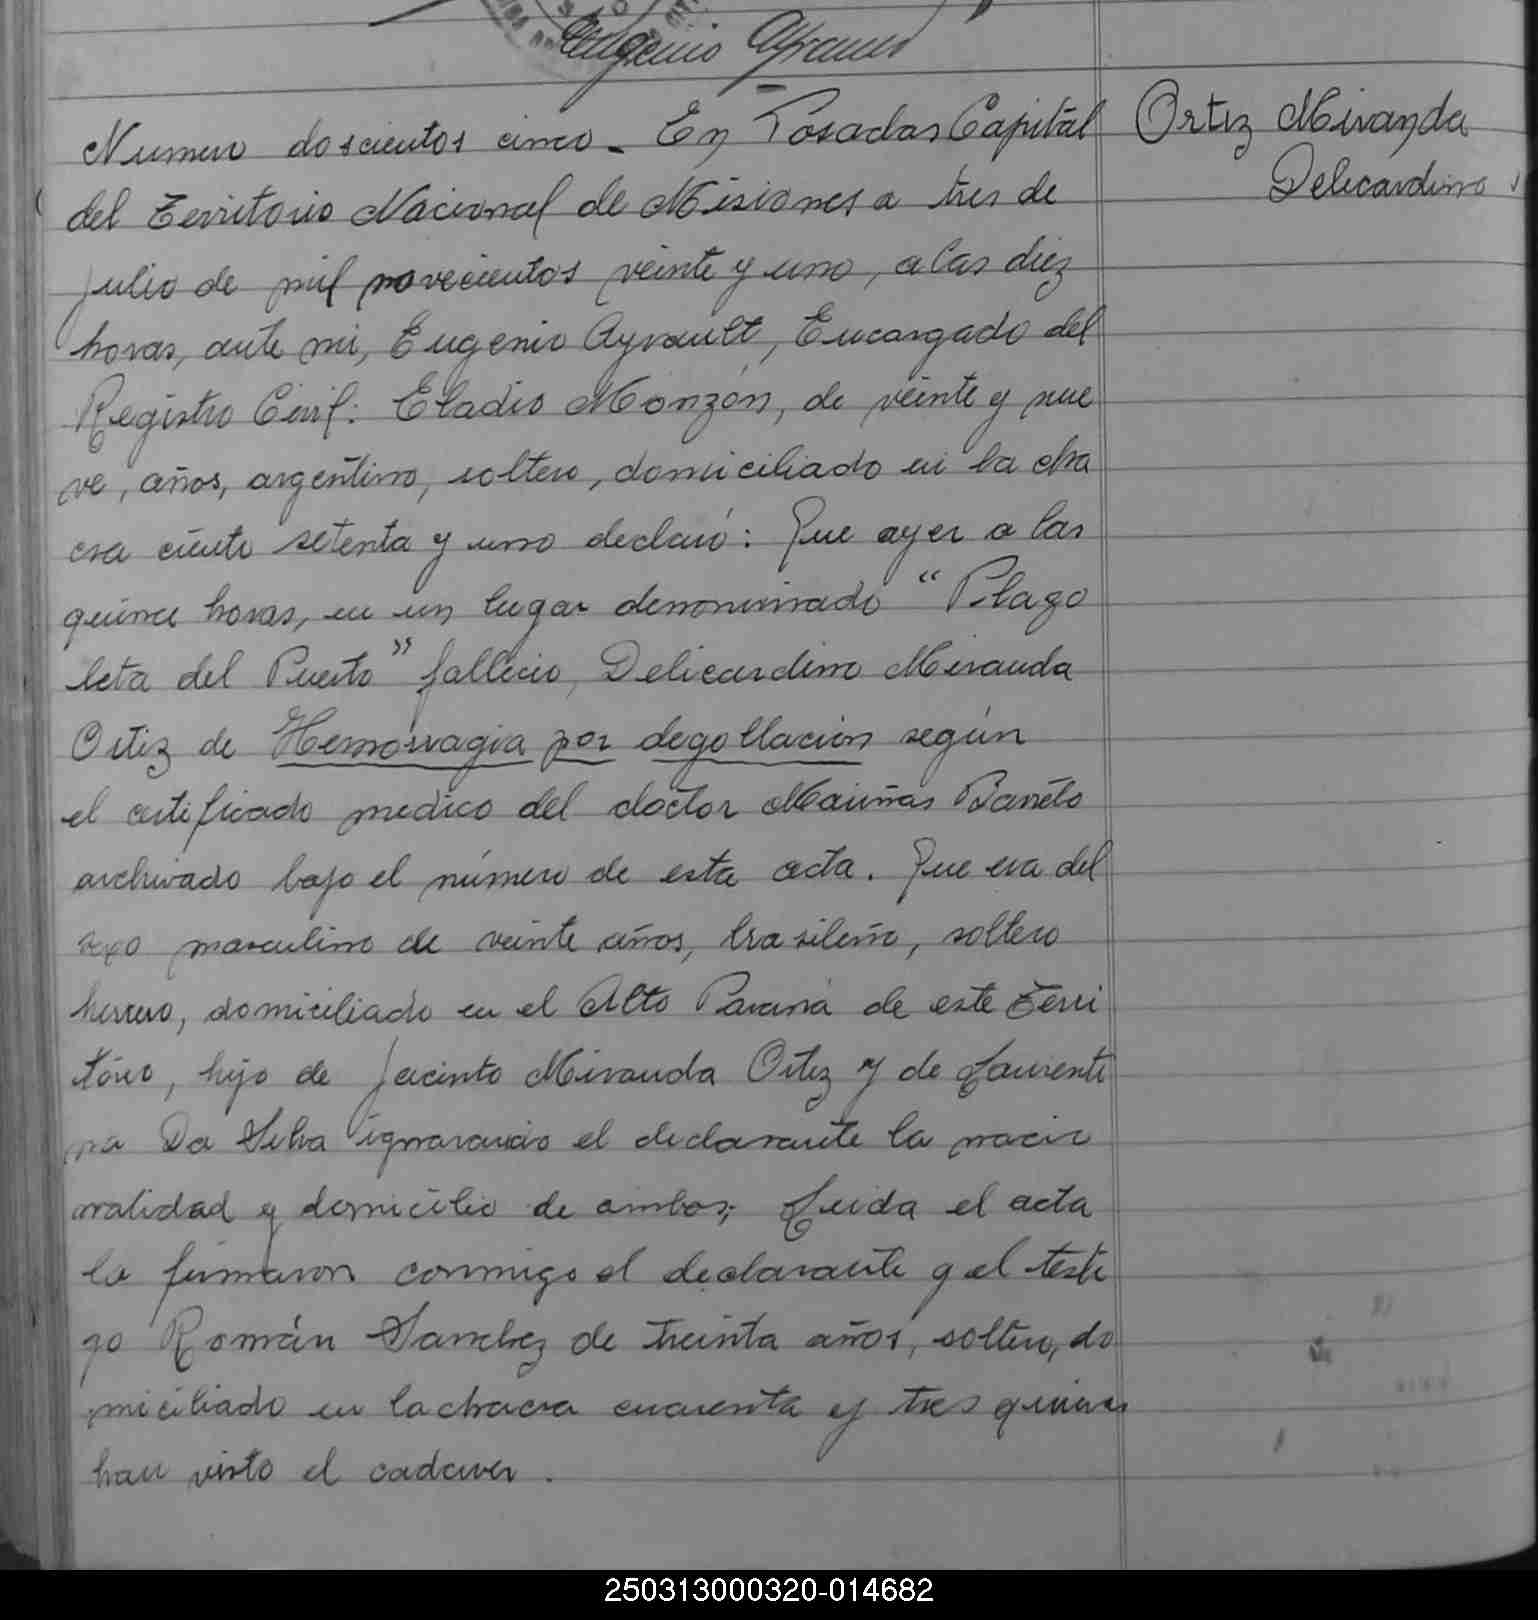 Eugenio Ayrault
Numero doscientos cinco - En Posadas Capital
del Territorio Nacional de Misiones a tres de
julio de mil novecientos veinte y uno, a las diez
horas, ante mi, Eugenio Ayrault, Encargado del
Registro Civil: Eladio Monzón, de veinte y nue
ve, años, argentino, soltero, domiciliado en la cha
cra ciento setenta y uno declaró: Que ayer a las
quince horas, en un lugar denominado "Plago
leta del Puerto" fallecio, Delicardino Miranda
Ortiz de Hemorragia por degollacion según
el certificado medico del doctor Barreto
archivado bajo el número de esta acta. Que era del
sexo masculino de veinte años, brasileño, soltero
herrero, domiciliado en el Alto Paraná de este Terri
torio, hijo de Jacinto Miranda Ortiz y de Laurenti
na Da Silva ignorando el declarante la nacio
nalidad y domicilio de ambos; Leida el acta
la firmaron conmigo el declarante y el testi
go Román Sanchez de treinta años, soltero, do
miciliado en la chacra cuarenta y tres quienes
han visto el cadaver.
Ortiz Miranda
Delicardino
250313000320-014682